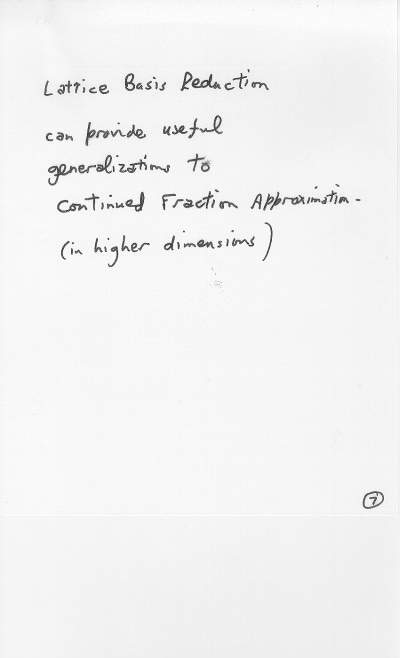 Lattice Basis Reduction
can provide useful
generalizations to
Continued Fraction Approximation.
(in higher dimensions)
7